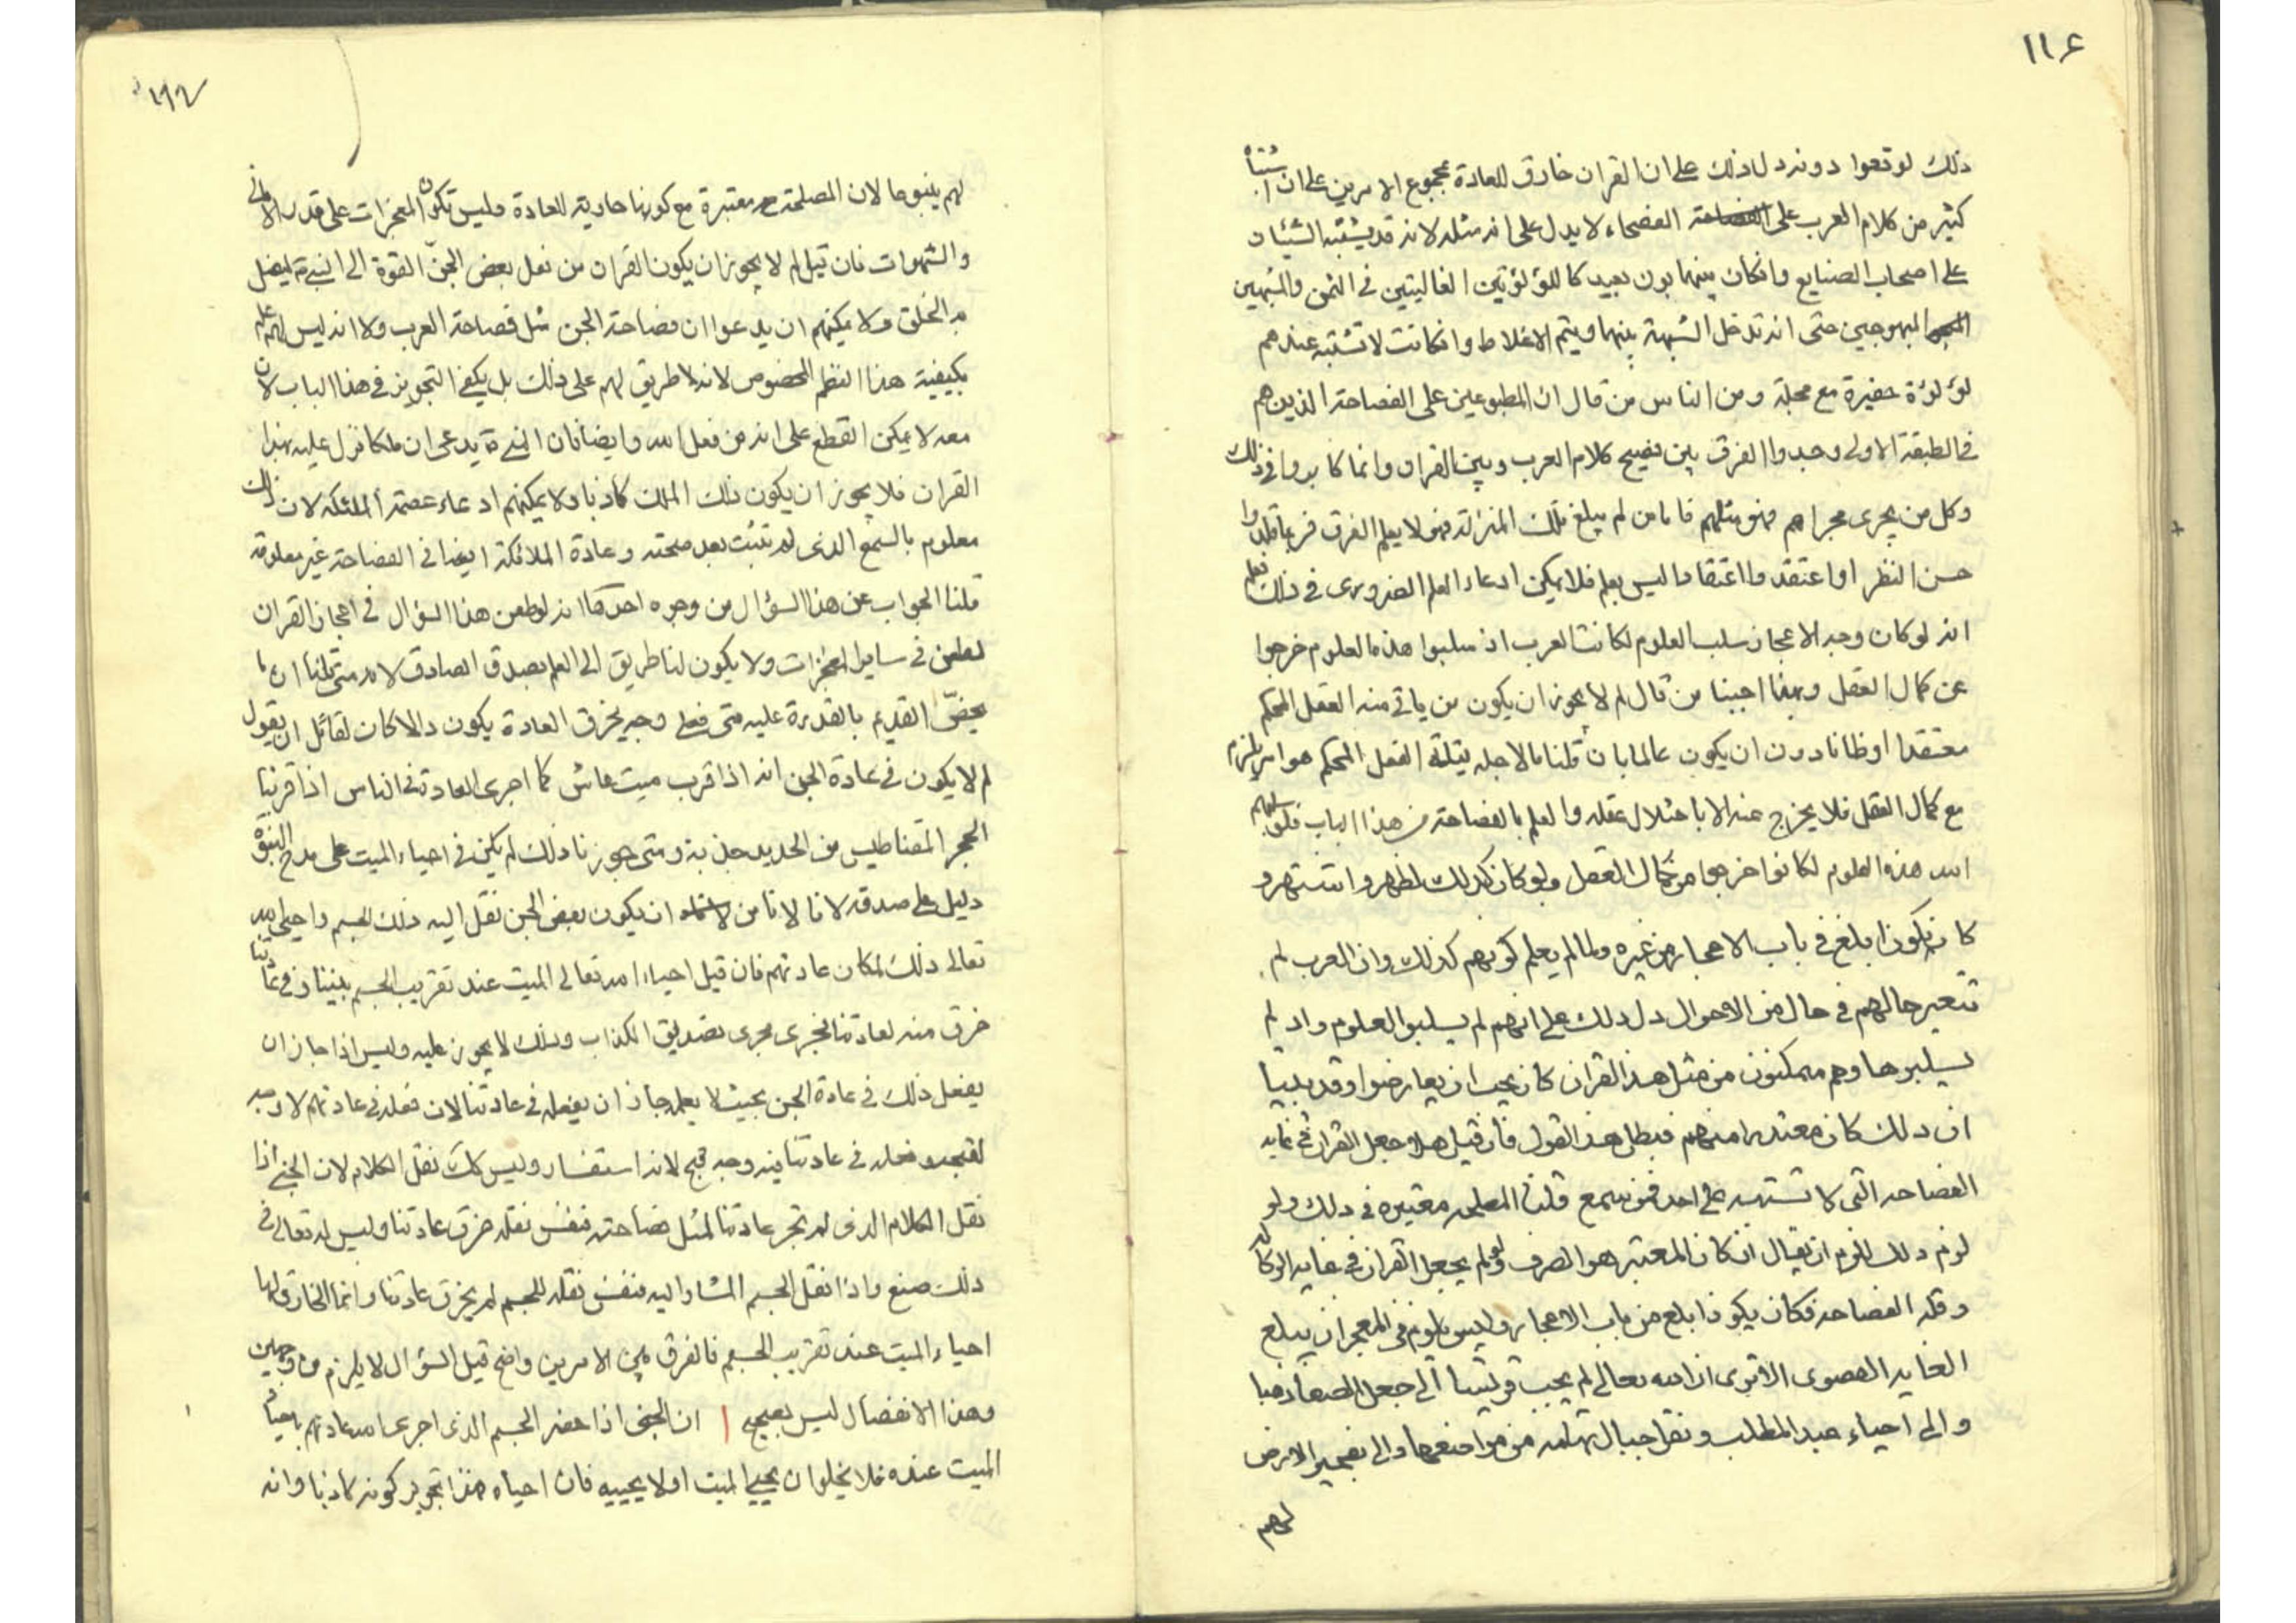 ١١٤
ذلك لوقعوا دونه دل ذلك على ان القران خارق للعادة بمجموع الامرين على ان اشتباه
كثير من كلام العرب على الفصحاء لا يدل على انه مثله لانه قد يشتبه الشيئان
على اصحاب الصنايع وان كان بينهما بون بعيد كاللؤلؤتين الغاليتين في الثمن والشبهين
البهرجين حتى انه تدخل الشبهة بينهما ويتم الاغلاط وان كانت لا تشتبه عندهم
لؤلؤة حقيرة مع ومن الناس من قال ان المطبوعين على الفصاحة الذين هم
في الطبقة الاولى وجدوا الفرق بين فصيح كلام العرب وبين القران وانما كابروا في ذلك
وكل من يجرى مجراهم فهو مثلهم فاما من لم يبلغ تلك المنزلة فهو لا يعلم الفرق فربما قلدوا
حسن النظر او اعتقدوا اعتقادا ليس بعلم فلا يمكن ادعاء العلم الضروري في ذلك
انه لو كان وجه الاعجاز سلب العلوم لكانت العرب اذ سلبوا هذه العلوم خرجوا
عن كمال العقل وبهذا اجبنا من قال لم لا يجوز ان يكون من ياتي منه الفعل المحكم
معتقدا او ظانا دون ان يكون عالما بان قلنا ما لاجله الفعل المحكم هو امر يلزم
مع كمال العقل فلا يخرج عنه الا باختلال عقله والعلم بالفصاحة من هذا الباب فلو سلبهم
الله هذه العلوم لكانوا خرجوا من كمال العقل ولو كان كذلك لظهر واشتهر و
كان يكون ابلغ في باب الاعجاز من غيره ولما لم يعلم كونهم كذلك وان العرب لم
تتغير حالهم في حال من الاحوال دل ذلك على انهم لم يسلبوا العلوم واذ لم
يسلبوها وهم متمكنون من مثل هذا القران كان يجب ان يعارضوا وقد بينا
ان ذلك كان متعذرا منهم فبطل هذا القول فان قيل هلا جعل القران في غاية
الفصاحه التي لا تشتبه على احد ممن سمع قلنا المصلحه معتبره في ذلك ولو
لزم ذلك للزم ان يقال ان كان المعتبر هو الصرف فلم لم يجعل القران في غاية الركاكه
وقلة الفصاحة فكان يكون ابلغ من باب الاعجاز وليس يلزم في المعجز ان يبلغ
الغاية القصوى الا ترى ان الله تعالى لم يجب قريشا الى جعل الصفا ذهبا
والى احياء عبد المطلب ونقل جبال تهامه من مواضعها والى تفجير الارض
لهم
لهم ينبوعا لان المصلحة معتبرة مع كونها خارقة للعادة وليس تكون المعجزات على قدر الاماني
والشهوات فان قيل لم لا يجوز ان يكون القران من نقل بعض الجن القوة الى النبي ليضل
به الخلق ولا يمكنهم ان يدعوا ان فصاحة الجن مثل فصاحة العرب ولا انه ليس لهم علم
بكيفية هذا النظم المخصوص لانه لا طريق لهم على ذلك بل يكفي التجويز في هذا الباب لان
معه لا يمكن القطع على انه من فعل الله وايضا فان النبي يدعى ان ملكا نزل عليه بهذا
القران فلا يجوز ان يكون ذلك الملك كاذبا ولا يمكنهم ادعاء عصمة الملئكة لان ذلك
معلوم بالسمع الذي لم تثبت بعد صحته وعادة الملائكة ايضا في الفصاحة غير معلومة
قلنا الجواب عن هذا السؤال من وجوه احدها انه لو طعن هذا السؤال في اعجاز القران
لطعن في ساير المعجزات ولا يكون لنا طريق الى العلم بصدق الصادق لانه متى قلنا ان ما
يختص القديم بالقدرة عليه متى فعله وجه يخرق العادة يكون دالا كان لقائل ان يقول
لم لا يكون في عادة الجن انه اذا قرب ميت عاش كما اجرى العادة في الناس اذا قربنا
الحجر المقناطيس من الحديد جذبه ومتى جوزنا ذلك لم يكن في احياء الميت على مدعي النبوة
دليل على صدقه لانا لا نامن ان يكون بعض الجن نقل اليه ذلك الجسم
تعالى ذلك لمكان عادتهم فان قيل احياء الله تعالى الميت عند تقريب الجسم بيننا وفي عادتنا
خرق منه لعادتنا مجرى تصديق الكذاب وذلك لا يجوز عليه وليس اذا جاز ان
يفعل ذلك في عادة الجن بحيث لا يعلم جاز ان يفعله في عادتنا لان فعله في عادتهم لا وجه
لقبحه وفعله في عادتنا فيه وجه قبح لانه استفساد وليس كك نقل الكلام لان الجني اذا
نقل الكلام الذي لم تجر عادتنا لمثل فصاحته فنفس نقله خرق عادتنا وليس لله تعالى في
ذلك صنع واذا نقل الجسم المشار اليه فنفس نقله للجسم لم يخرق عادتنا وانما الخارق لها
احياء الميت عند تقريب الجسم فالفرق بين الامرين واضح قيل السؤال لا يلزم من وجهين
وهذا الانفصال ليس بصحيح ا ان الجني اذا حضر الجسم الذي اجرى الله عادتهم باحياء
الميت عنده فلا يخلوا ان يحيي الميت او لا يحييه فان احياه هذا تجويز كونه كاذبا وانه